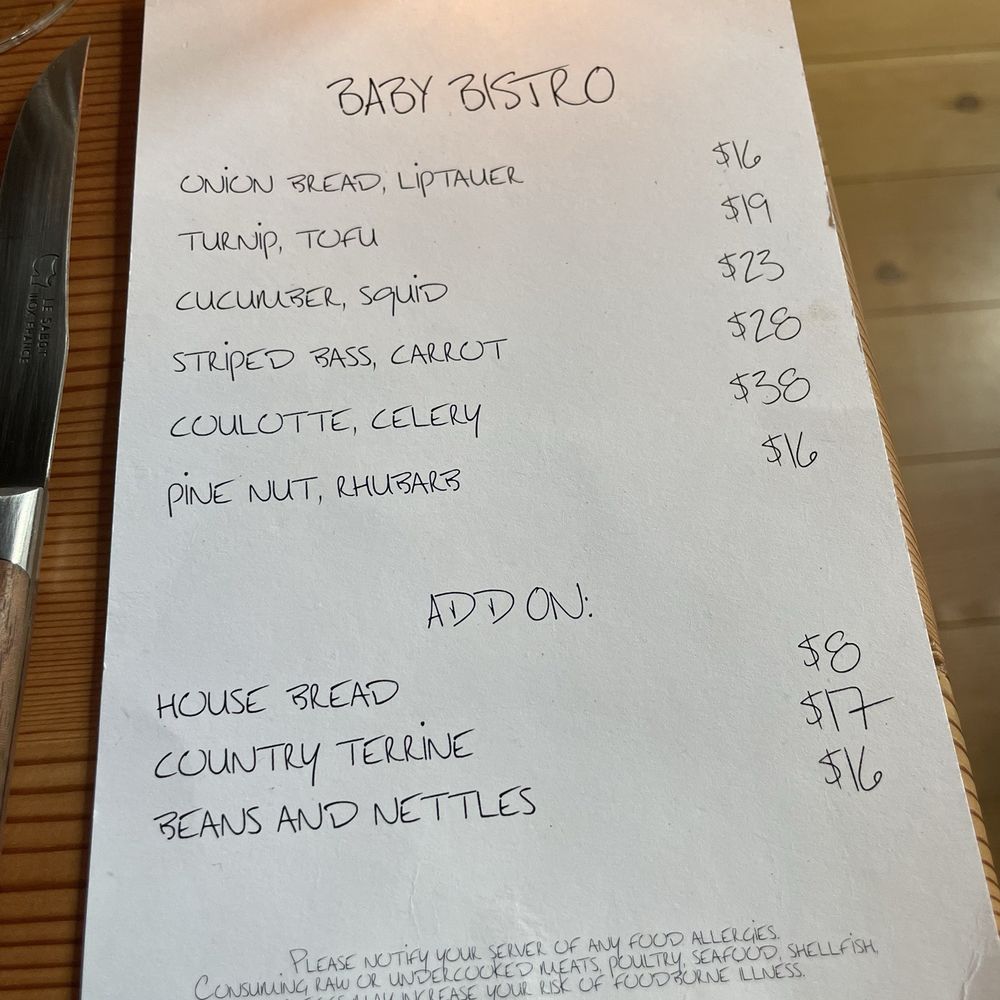 BABY BISTRO
ONION BREAD, LIPTAUER $16
TURNIP, TOFU $19
CUCUMBER, SQUID $23
STRIPED BASS, CARROT $28
COULOTTE, CELERY $38
PINE NUT, RHUBARB $16
ADD ON:
HOUSE BREAD $8
COUNTRY TERRINE $17
BEANS AND NETTLES $16
PLEASE NOTIFY YOUR SERVER OF ANY FOOD ALLERGIES.
CONSUMING RAW OR UNDERCOOKED MEATS, POULTRY, SEAFOOD, SHELLFISH,
MAY INCREASE YOUR RISK OF FOODBORNE ILLNESS.
LE SABOT
INOX FRANCE